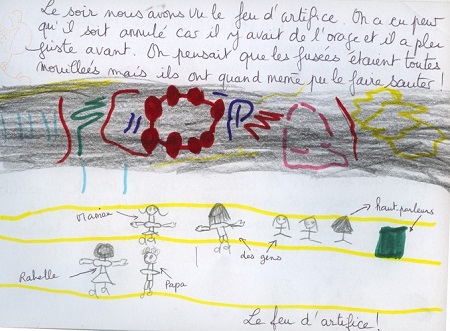 Le soir nous avons vu le feu d'artifice. On a eu peur
qu'il soit annulé car il y avait de l'orage et il a plu
juste avant. On pensait que les fusées étaient toutes
mouillées mais ils ont quand meme pu le faire sauter !
Maman
haut-parleurs
des gens
Rahelle
Papa
Le feu d'artifice !